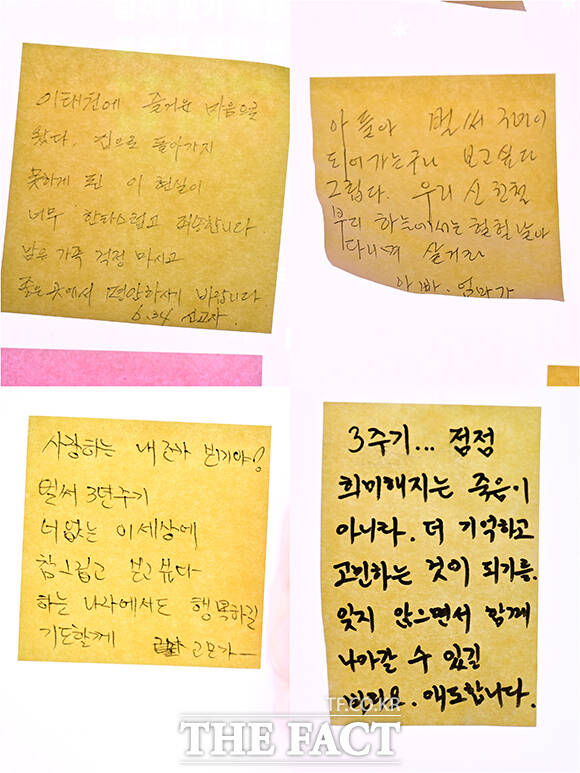 이태원에 즐거운 마음으로
왔다, 집으로 돌아가지
못하게 된 이 현실이
너무 한탄스럽고 죄송합니다
남은 가족 걱정 마시고
좋은 곳에서 평안하시게 바랍니다
6.34 신고자.
아들아 벌써 3년이
되어가는구나 보고싶다
그립다. 우리 신
부리 하늘에서는 훨훨 날아
다니며 살거라
아빠. 엄마가
사랑하는 내 조카
벌써 3년주기
너 없는 이세상에
참 그립고 보고 싶다
하늘 나라에서도 행복하길
기도할게 고모가
3주기... 점점
희미해지는 죽음이
아니라. 더 기억하고
고민하는 것이 되기를.
잊지 않으면서 함께
나아갈 수 있길
빌어요. 애도합니다.
TF.CO.KR
THE FACT